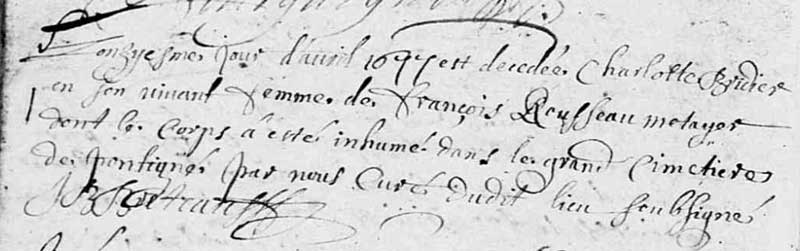 onzyesme jour d'avril 1697 est decedée Charlotte Brudier
en son vivant femme de François Rousseau metayer
dont le corps a esté inhumé dans le grand cimetiere
de pontigné par nous Curé dudit lieu soubsigné